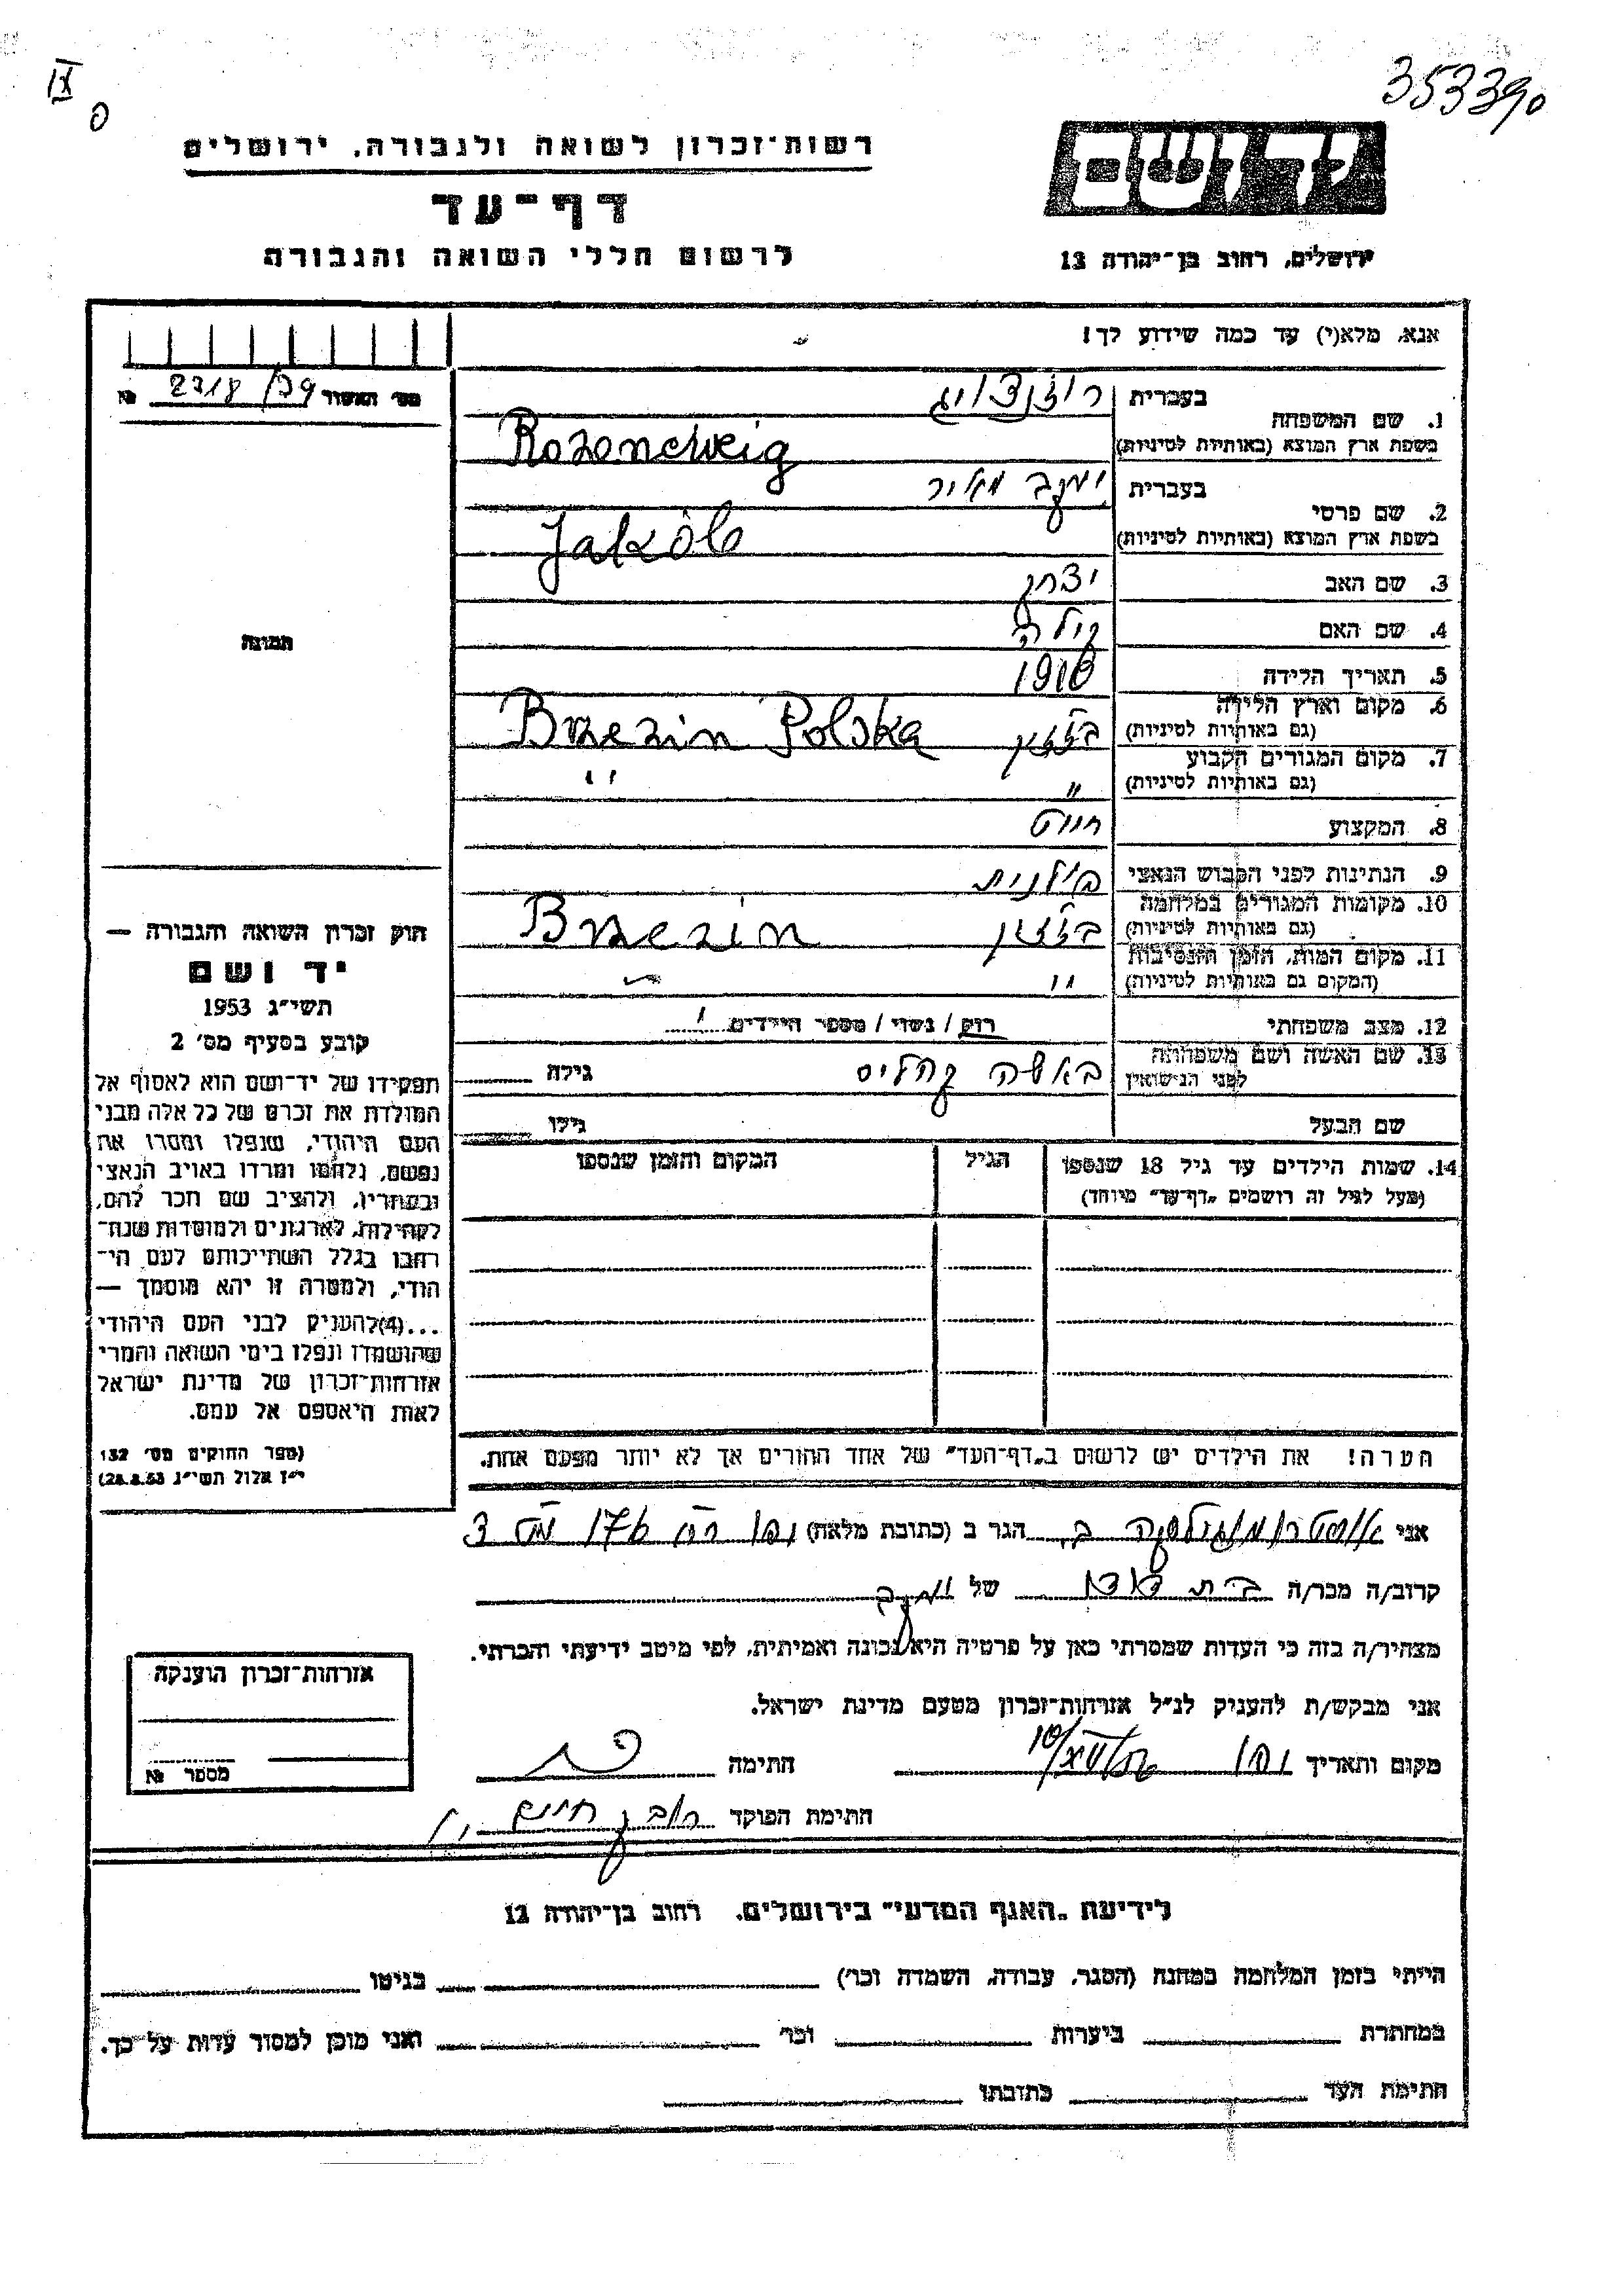 IX
353390
רשות־זכרון לשואה ולגבורה, ירושלים
דף־עד
לרשום חללי השואה והגבורה
יד ושם
ירושלים, רחוב בן־יהודה 12
אנא, מלא(י) עד כמה שידוע לך!
מס' האשור 2318/39 №
תמונה
חוק זכרון השואה והגבורה —
יד ושם
תשי"ג 1953
קובע בסעיף מס' 2
תפקידו של יד־ושם הוא לאסוף אל
המולדת את זכרם של כל אלה מבני
העם היהודי, שנפלו ומסרו את
נפשם, נלחמו ומרדו באויב הנאצי
ובעוזריו, ולהציב שם וזכר להם,
לקהילות, לארגונים ולמוסדות שנח־
רבו בגלל השתייכותם לעם הי־
הודי, ולמטרה זו יהא מוסמך —
...(4)להעניק לבני העם היהודי
שהושמדו ונפלו בימי השואה והמרי
אזרחות־זכרון של מדינת ישראל
לאות היאספם אל עמם.
(ספר החוקים מס' 132
י"ז אלול תשי"ג 28.8.53)
1. שם המשפחה בעברית רוזנצויג
בשפת ארץ המוצא (באותיות לטיניות) Rozencweig
2. שם פרטי בעברית יעקב מאיר
בשפת ארץ המוצא (באותיות לטיניות) Jakób
3. שם האב יצחק
4. שם האם
5. תאריך הלידה
6. מקום וארץ הלידה
(גם באותיות לטיניות) Brzezin Polska
7. מקום המגורים הקבוע
(גם באותיות לטיניות) " "
8. המקצוע חייט
9. הנתינות לפני הכבוש הנאצי פולנית
10. מקומות המגורים במלחמה
(גם באותיות לטיניות) Brzezin
11. מקום המות, הזמן והנסיבות
(המקום גם באותיות לטיניות) "
12. מצב משפחתי רוק / נשוי / מספר הילדים 1
13. שם האשה ושם משפחתה
לפני הנישואין באשה גילה
שם הבעל גילו
14. שמות הילדים עד גיל 18 שנספו הגיל המקום והזמן שנספו
(מעל לגיל זה רושמים "דף־עד" מיוחד)
הערה! את הילדים יש לרשום ב"דף־העד" של אחד ההורים אך לא יותר מפעם אחת.
אני הגר ב (כתובת מלאה)
קרוב/ה מכר/ה בת דודו של יעקב
מצהיר/ה בזה כי העדות שמסרתי כאן על פרטיה היא נכונה ואמיתית, לפי מיטב ידיעתי והכרתי.
אני מבקש/ת להעניק לנ"ל אזרחות־זכרון מטעם מדינת ישראל.
מקום ותאריך חתימה
חתימת הפוקד
אזרחות־זכרון הוענקה
מספר №
לידיעת "האגף המדעי" בירושלים, רחוב בן־יהודה 12
הייתי בזמן המלחמה במחנה (הסגר, עבודה, השמדה וכו') בגיטו
במחתרת ביערות וכו' ואני מוכן למסור עדות על כך.
חתימת העד כתובתו